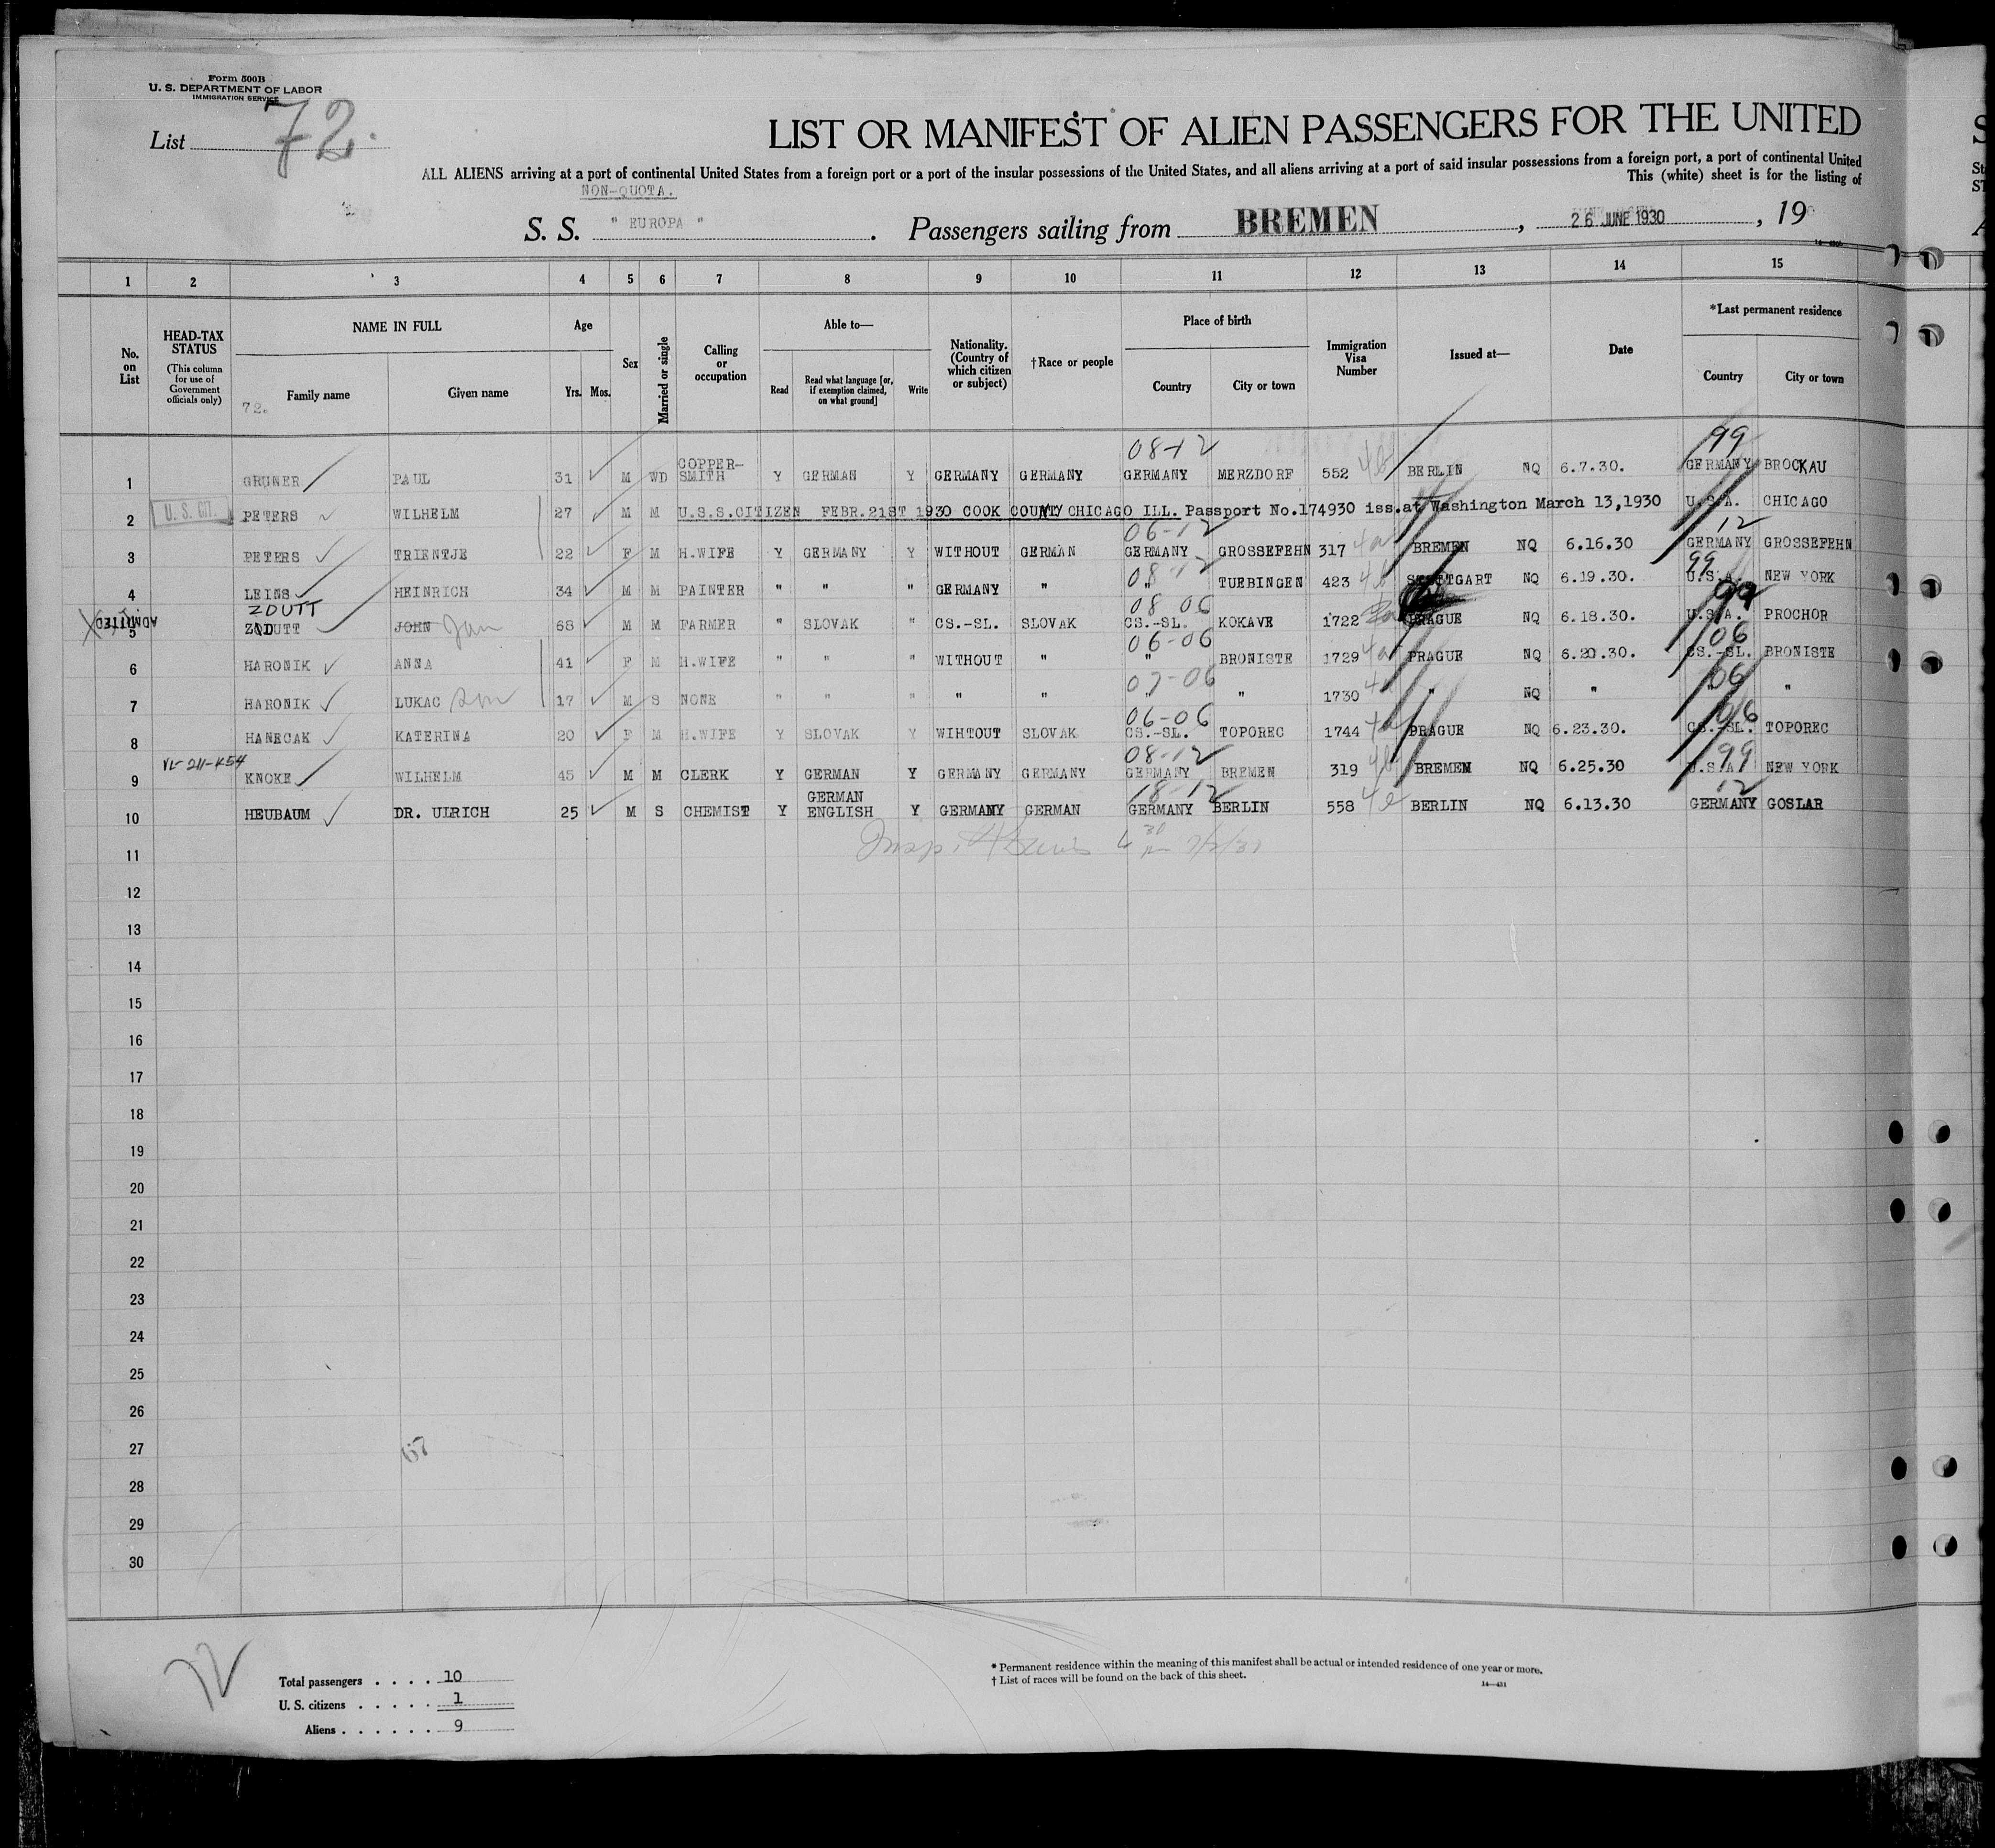 Form 500B
U. S. DEPARTMENT OF LABOR
IMMIGRATION SERVICE
List 72.
LIST OR MANIFEST OF ALIEN PASSENGERS FOR THE UNITED
ALL ALIENS arriving at a port of continental United States from a foreign port or a port of the insular possessions of the United States, and all aliens arriving at a port of said insular possessions from a foreign port, a port of continental United
This (white) sheet is for the listing of
NON-QUOTA.
S. S. " EUROPA ". Passengers sailing from BREMEN, 26 JUNE 1930, 19
1 2 3 4 5 6 7 8 9 10 11 12 13 14 15
No. on List
HEAD-TAX STATUS (This column for use of Government officials only)
NAME IN FULL Family name Given name
72.
Age Yrs. Mos.
Sex
Married or single
Calling or occupation
Able to— Read Read what language [or, if exemption claimed, on what ground] Write
Nationality. (Country of which citizen or subject)
† Race or people
Place of birth Country City or town
Immigration Visa Number
Issued at—
Date
*Last permanent residence Country City or town
08-12 99
1 GRUNER PAUL 31 M WD COPPER-SMITH Y GERMAN Y GERMANY GERMANY GERMANY MERZDORF 552 4b BERLIN NQ 6.7.30. GERMANY BROCKAU
2 U. S. CIT. PETERS WILHELM 27 M M U.S.S.CITIZEN FEBR.21ST 1930 COOK COUNTY CHICAGO ILL. Passport No.174930 iss.at Washington March 13,1930 U.S.A. CHICAGO
06-12 12
3 PETERS TRIENTJE 22 F M H.WIFE Y GERMANY Y WITHOUT GERMAN GERMANY GROSSEFEHN 317 4a BREMEN NQ 6.16.30 GERMANY GROSSEFEHN
08-12 99
4 LEINS HEINRICH 34 M M PAINTER " " " GERMANY " " TUEBINGEN 423 4b STUTTGART NQ 6.19.30. U.S.A. NEW YORK
ZDUTT 08 06 99
ADMITTED 5 ZQDUTT JOHN Jan 68 M M FARMER " SLOVAK " CS.-SL. SLOVAK CS.-SL. KOKAVE 1722 PRAGUE NQ 6.18.30. U.S.A. PROCHOR
06-06 06
6 HARONIK ANNA 41 F M H.WIFE " " " WITHOUT " " BRONISTE 1729 4a PRAGUE NQ 6.20.30. CS.-SL. BRONISTE
07-06 06
7 HARONIK LUKAC son 17 M S NONE " " " " " " " 1730 " NQ " " "
06-06 06
8 HANECAK KATERINA 20 F M H.WIFE Y SLOVAK Y WIHTOUT SLOVAK CS.-SL. TOPOREC 1744 4a PRAGUE NQ 6.23.30. CS.-SL. TOPOREC
08-12 99
9 KNOKE WILHELM 45 M M CLERK Y GERMAN Y GERMANY GERMANY GERMANY BREMEN 319 4b BREMEN NQ 6.25.30 U.S.A. NEW YORK
18-12 12
10 HEUBAUM DR. ULRICH 25 M S CHEMIST Y GERMAN ENGLISH Y GERMANY GERMAN GERMANY BERLIN 558 4e BERLIN NQ 6.13.30 GERMANY GOSLAR
11
12
13
14
15
16
17
18
19
20
21
22
23
24
25
26
27
28
29
30
67
72
Total passengers . . . . 10
U. S. citizens . . . . . 1
Aliens . . . . . . 9
* Permanent residence within the meaning of this manifest shall be actual or intended residence of one year or more.
† List of races will be found on the back of this sheet.
14—431